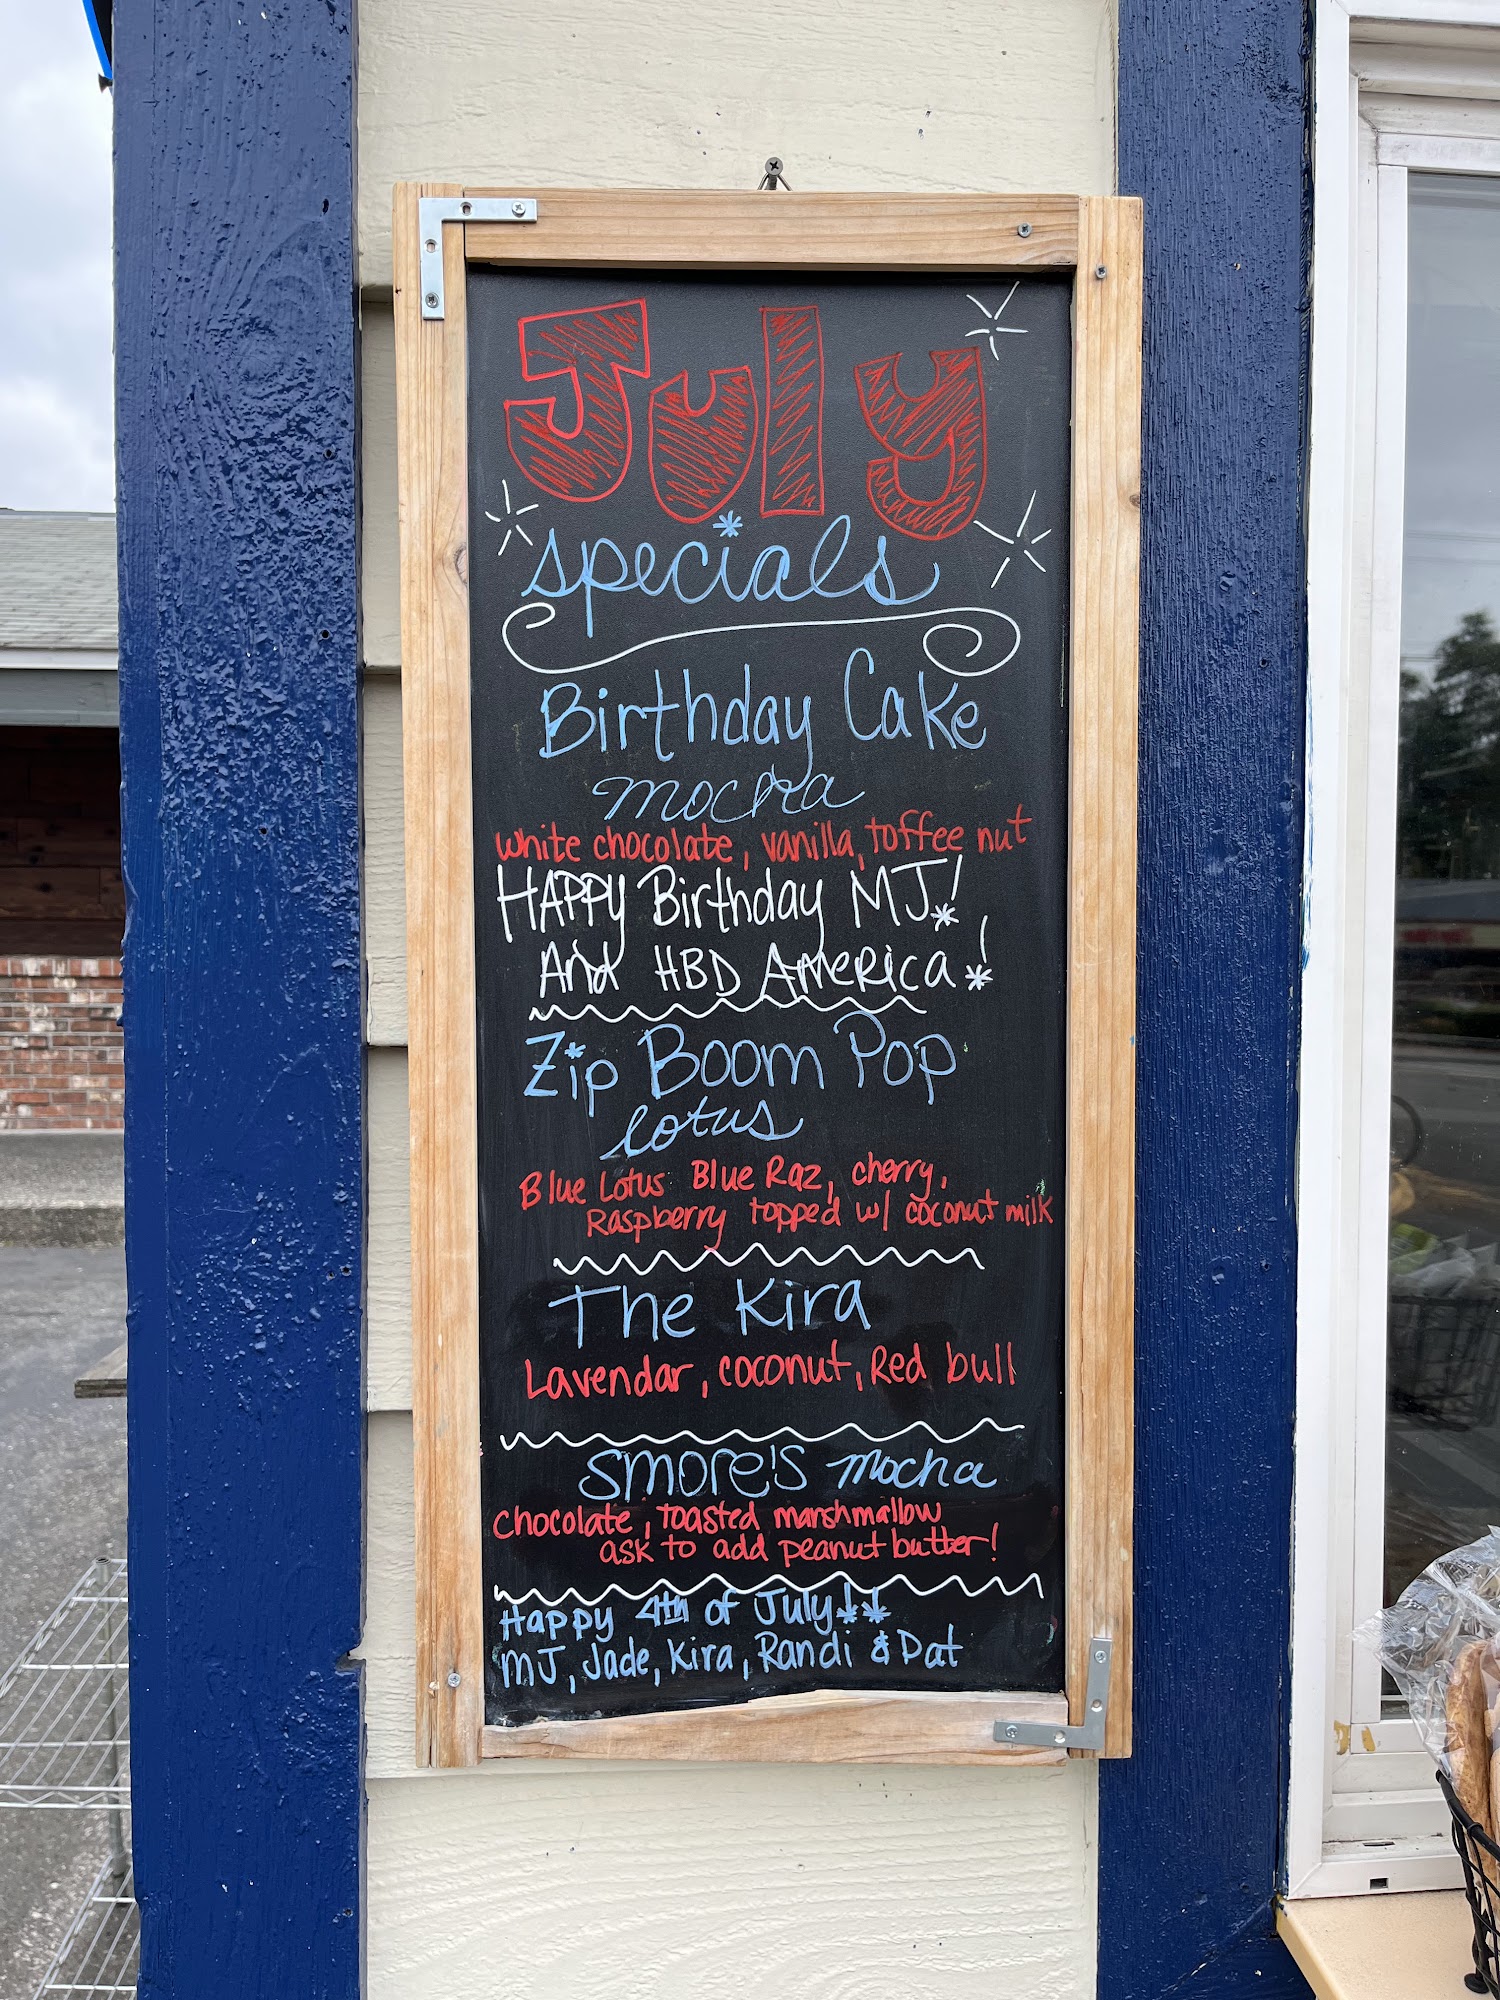 July
specials
Birthday Cake
mocha
white chocolate, vanilla, toffee nut
HAPPY Birthday MJ!
And HBD America!
Zip Boom Pop
lotus
Blue Lotus Blue Raz, cherry,
Raspberry topped w/ coconut milk
The Kira
Lavendar, coconut, Red bull
Smore's mocha
Chocolate, toasted marshmallow
ask to add peanut butter!
Happy 4th of July!!
MJ, Jade, Kira, Randi & Pat